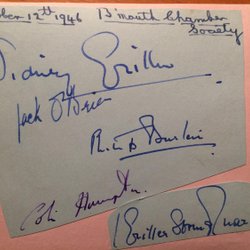 ber 12th 1946 B'mouth Chamber
Society
Sidney Griller
Jack O'Brien
Philip Burton
Colin Hampton
Griller String Quar